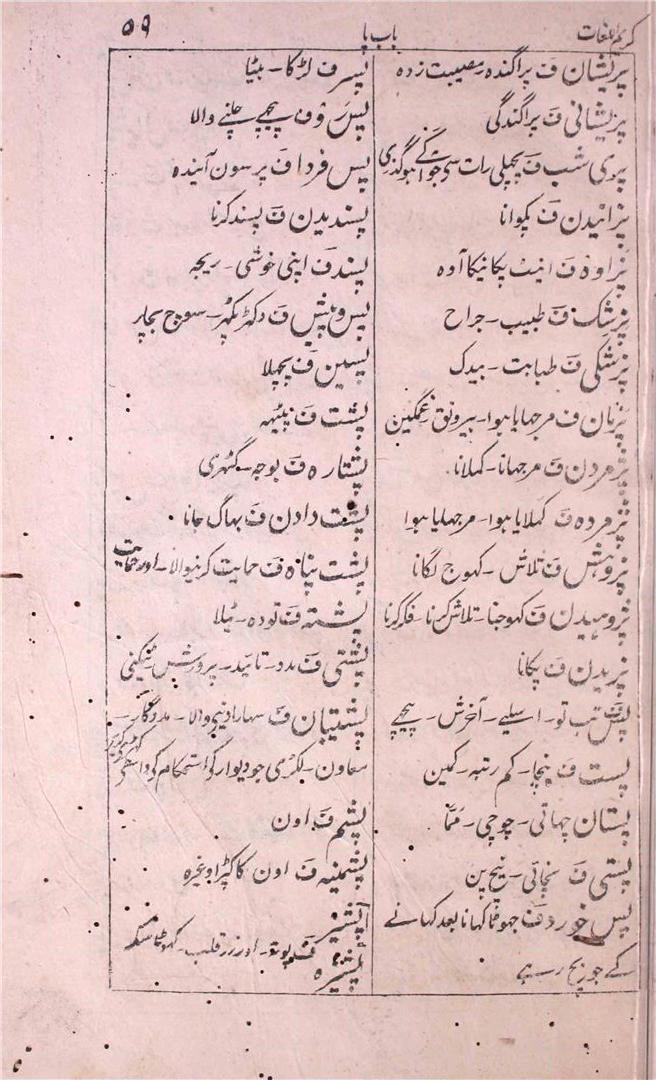 کریم اللغات
باب پا
۵۹
پریشان ف پراگندہ۔ مصیبت زدہ
پریشانی ف پراگندگی
پری شب ف پچھلی رات سی جو آگے ہو گذری
پزانیدن ف پکوانا
پزاوہ ف اینٹ پکانیکا آوہ
پزشک ف طبیب۔ جراح
پزشکی ف طبابت۔ بیدک
پژمان ف مرجھایا ہوا۔ بیرونق غمگین
پژمردن ف مرجھانا۔ کملانا
پژمردہ ف کملایا ہوا۔ مرجھایا ہوا
پژوہش ف تلاش۔ کھوج لگانا
پژوہیدن ف کھوجنا۔ تلاش کرنا۔ فکر کرنا
پزیدن ف پکانا
پس ف تب تو۔ اسلیے۔ آخرش۔ پیچھے
پست ف نیچا۔ کم رتبہ۔ کمین
پستان چھاتی۔ چوچی۔ ممّا
پستی ف نچائی۔ نیچ پن
پس خوردہ ف جھوٹا کھانا بعد کھانے
کے جو بچ رہے
پسر ف لڑکا۔ بیٹا
پس رَو ف پیچھے چلنے والا
پس فردا ف پرسون آیندہ
پسندیدن ف پسند کرنا
پسند ف اپنی خوشی۔ ریجھ
پس و پیش ف سوچ بچار
پسین ف پچھلا
پشت ف پیٹھ
پشتارہ ف بوجھ۔ گٹھری
پشت دادن ف بھاگ جانا
پشت پناہ ف حمایت کرنیوالا۔ اور حمایت
پشتہ ف تودہ۔ ٹیلا
پشتی ف مدد۔ تائید۔ پرورش
پشتیبان ف سہارا دینیوالا۔ مددگار۔
معاون۔ لکڑی جو دیوار کو استحکام کو واسطی
پشم ف اون
پشمینہ ف اون کا کپڑا وغیرہ
پشیز
پشیزہ
ف اور زر قلب۔ کھوٹا سکہ